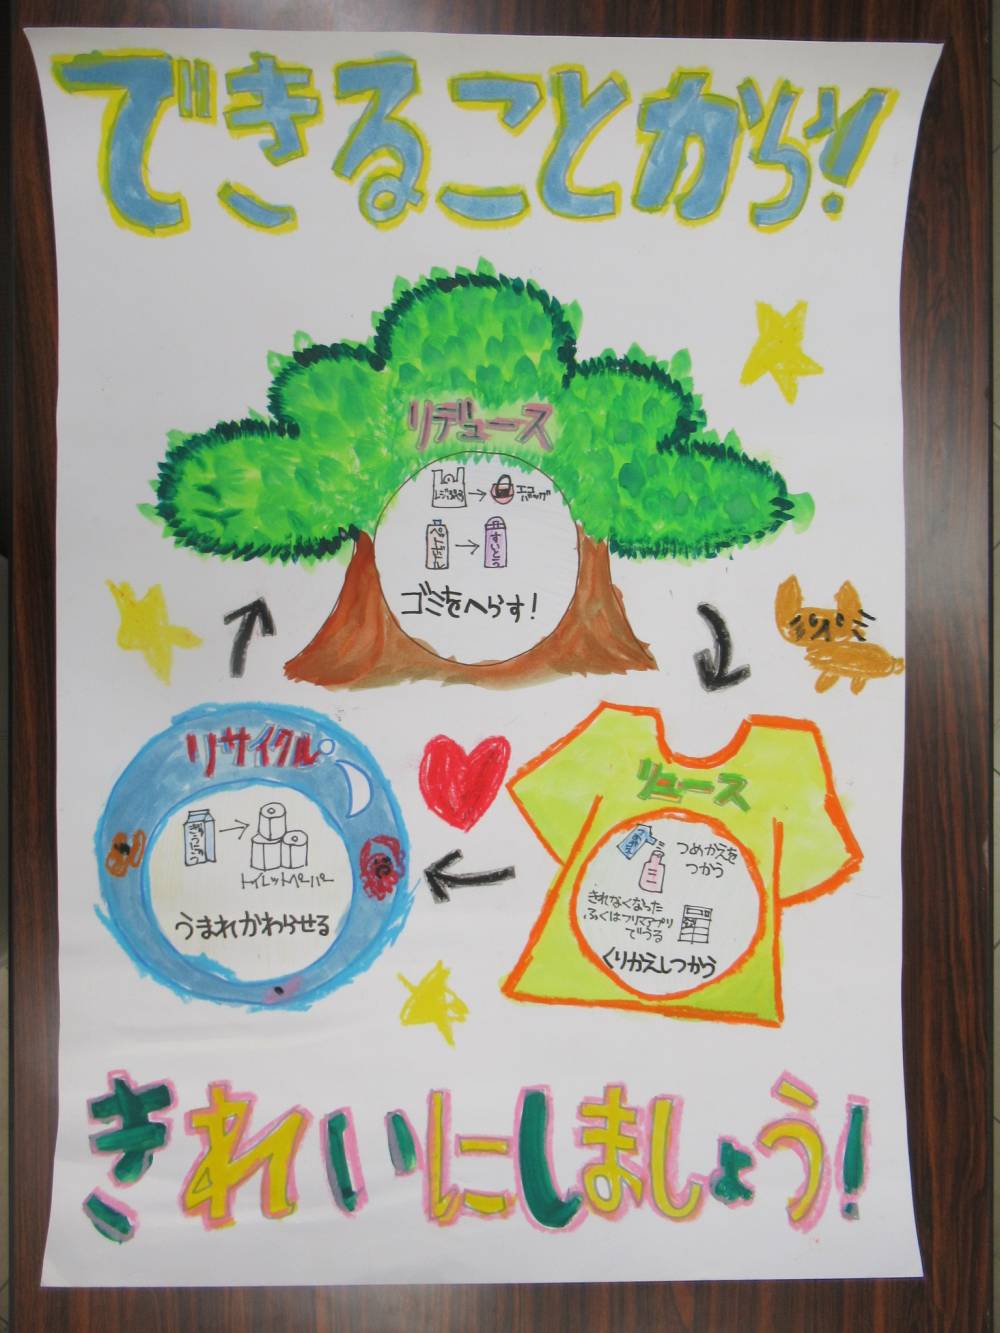 できることから!
リデュース
レジ袋
エコ
バッグ
ペットボトル
すいとう
ゴミをへらす!
リサイクル
ぎゅうにゅう
トイレットペーパー
うまれかわらせる
リユース
つめかえを
つかう
きれなくなった
ふくはフリマアプリ
でうる
くりかえしつかう
きれいにしましょう!